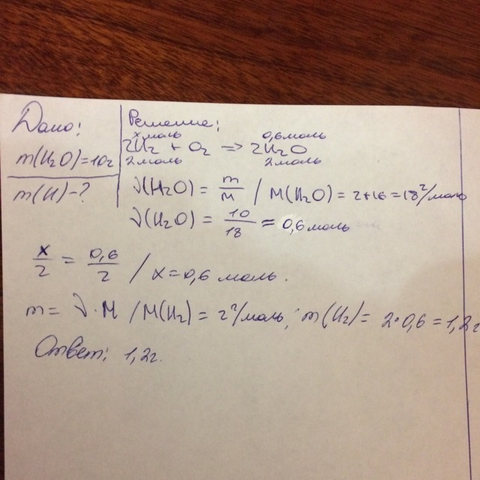 Дано:
m(H₂O)=10г
m(H)-?
Решение:
x моль 0,6 моль
2H₂ + O₂ => 2H₂O
2 моль 2 моль
ν(H₂O) = m/M / M(H₂O) = 2+16 = 18 г/моль
ν(H₂O) = 10/18 ≈ 0,6 моль
x/2 = 0,6/2 / x = 0,6 моль.
m = ν·M / M(H₂) = 2 г/моль; m(H₂) = 2·0,6 = 1,2г
Ответ: 1,2г.